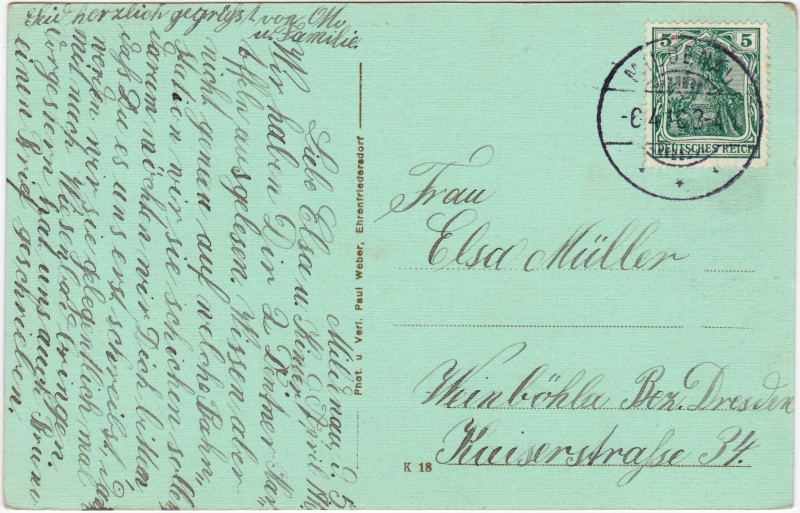 Seid herzlich gegrüßt von Otto
u. Familie.
Mildenau, d. 5.
April
Liebe Elsa u. Kinder!
Wir haben Dir 2 Zentner Kar-
toffeln ausgelesen. Wissen aber
nicht genau auf welche Bahn-
station wir sie schicken sollen
darum möchten wir Dich bitten
daß Du es uns erst schreibst, dann
werden wir sie gelegentlich mal
mit nach Wiesenbad bringen.
Vorgestern hat uns auch Bruno
einen Brief geschrieben.
Phot. u Verl. Paul Weber, Ehrenfriedersdorf
5 5
DEUTSCHES REICH
Frau
Elsa Müller
Weinböhla Bez. Dresden
Kaiserstraße 34.
K 18